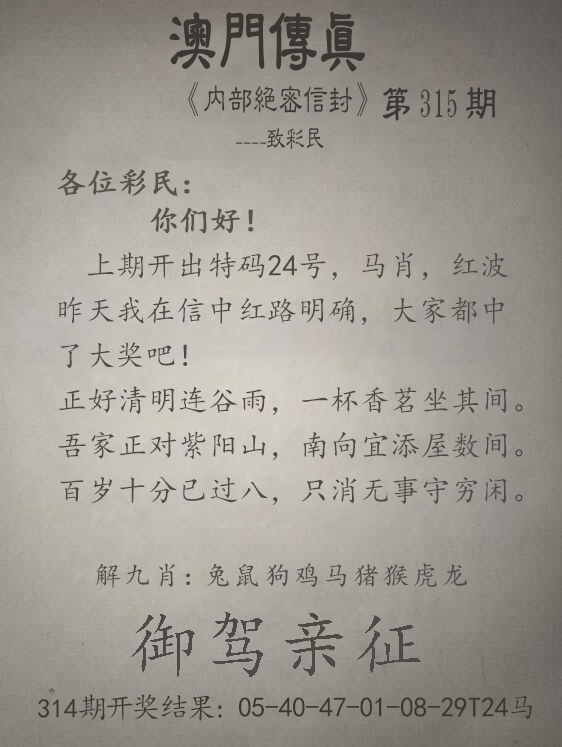 澳門傳真
《内部絕密信封》第315期
----致彩民
各位彩民：
你们好！
上期开出特码24号，马肖，红波
昨天我在信中红路明确，大家都中
了大奖吧！
正好清明连谷雨，一杯香茗坐其间。
吾家正对紫阳山，南向宜添屋数间。
百岁十分已过八，只消无事守穷闲。
解九肖：兔鼠狗鸡马猪猴虎龙
御驾亲征
314期开奖结果：05-40-47-01-08-29T24马